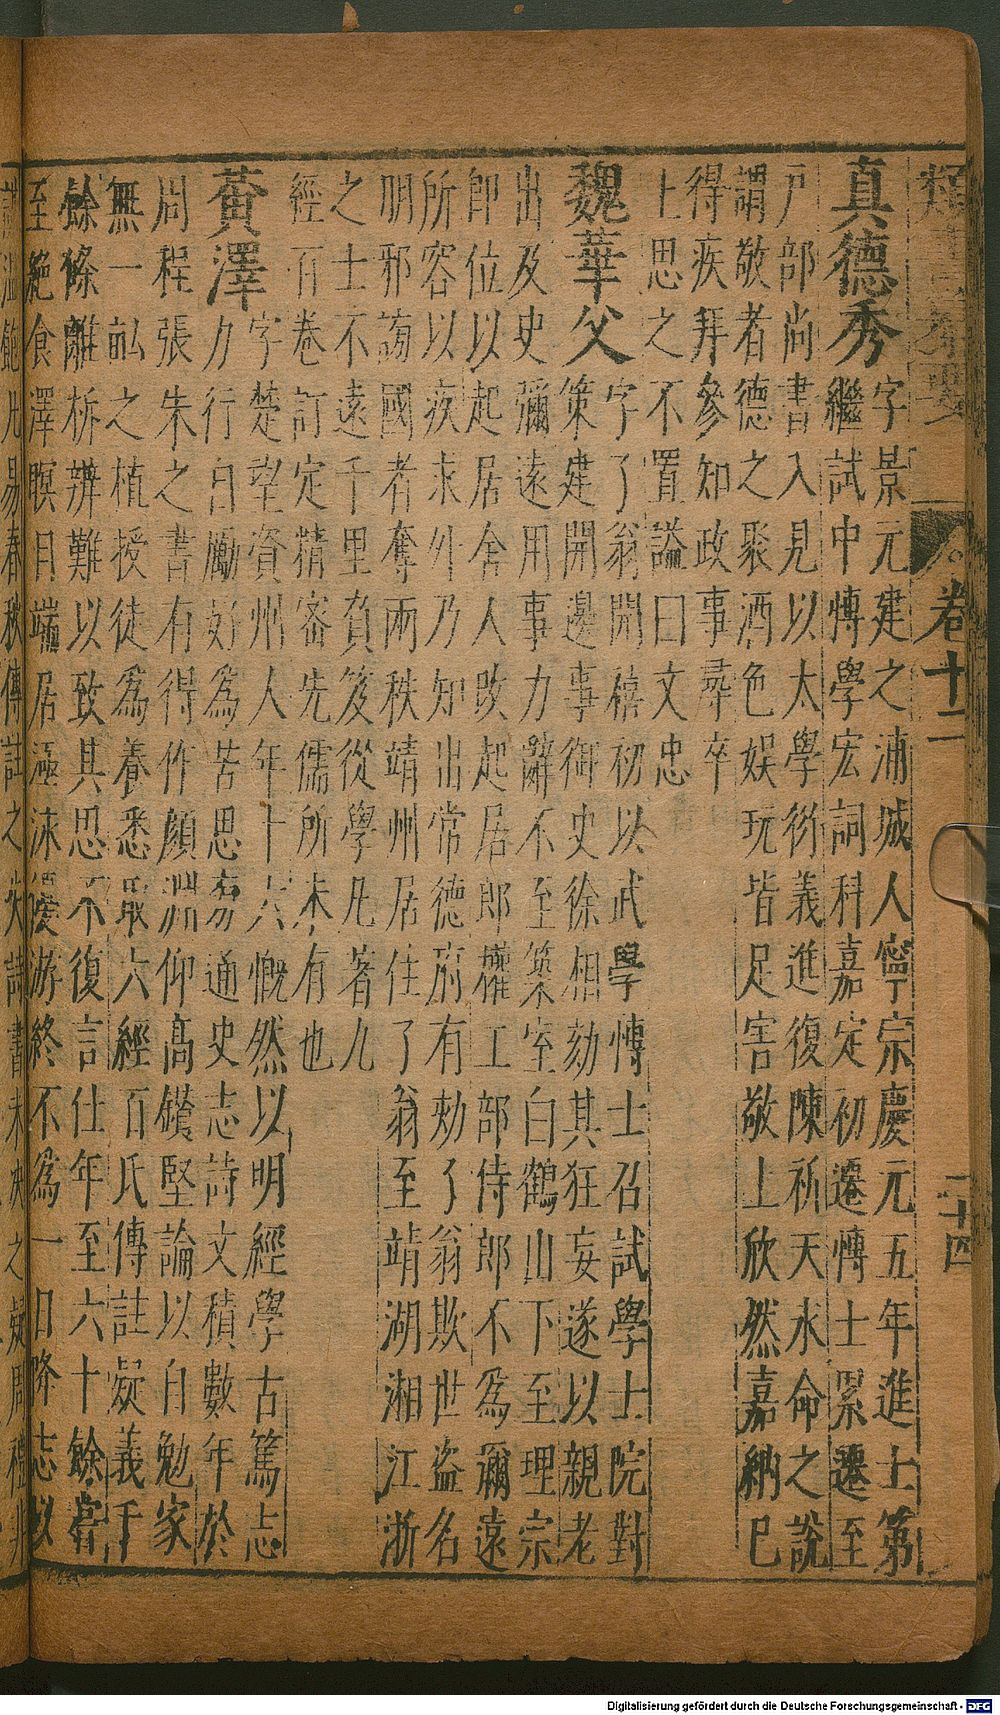 類書纂要　卷十二　二十四
真德秀　字景元建之浦城人寧宗慶元五年進士第
繼試中博學宏詞科嘉定初遷博士累遷至
戶部尚書入見以太學衍義進復陳祈天永命之說
謂敬者德之聚酒色娛玩皆足害敬上欣然嘉納已
得疾拜參知政事尋卒
上思之不置諡曰文忠
魏華父　字了翁開禧初以武學博士召試學士院對
策建開邊事御史徐相劾其狂妄遂以親老
出及史彌遠用事力辭不至築室白鶴山下至理宗
即位以起居舍人改起居郎權工部侍郎不為彌遠
所容以疾求外乃知出常德府有劾了翁欺世盜名
明邪謗國者奪兩秩靖州居住了翁至靖湖湘江浙
之士不遠千里負笈從學凡著九
經百卷訂定精審先儒所未有也
黃澤　字楚望資州人年十六慨然以明經學古篤志
力行自勵好為苦思通史志詩文積數年於
周程張朱之書有得作顏淵仰高鑽堅論以自勉家
無一畝之植授徒為養悉取六經百氏傳註疑義千
餘條離析辨難以致其思不復言仕年至六十餘嘗
至絕食澤瞑目端居涵泳優游終不為一日降志以
溫飽凡易春秋傳註之失詩書未決之疑周禮非
Digitalisierung gefördert durch die Deutsche Forschungsgemeinschaft - DFG